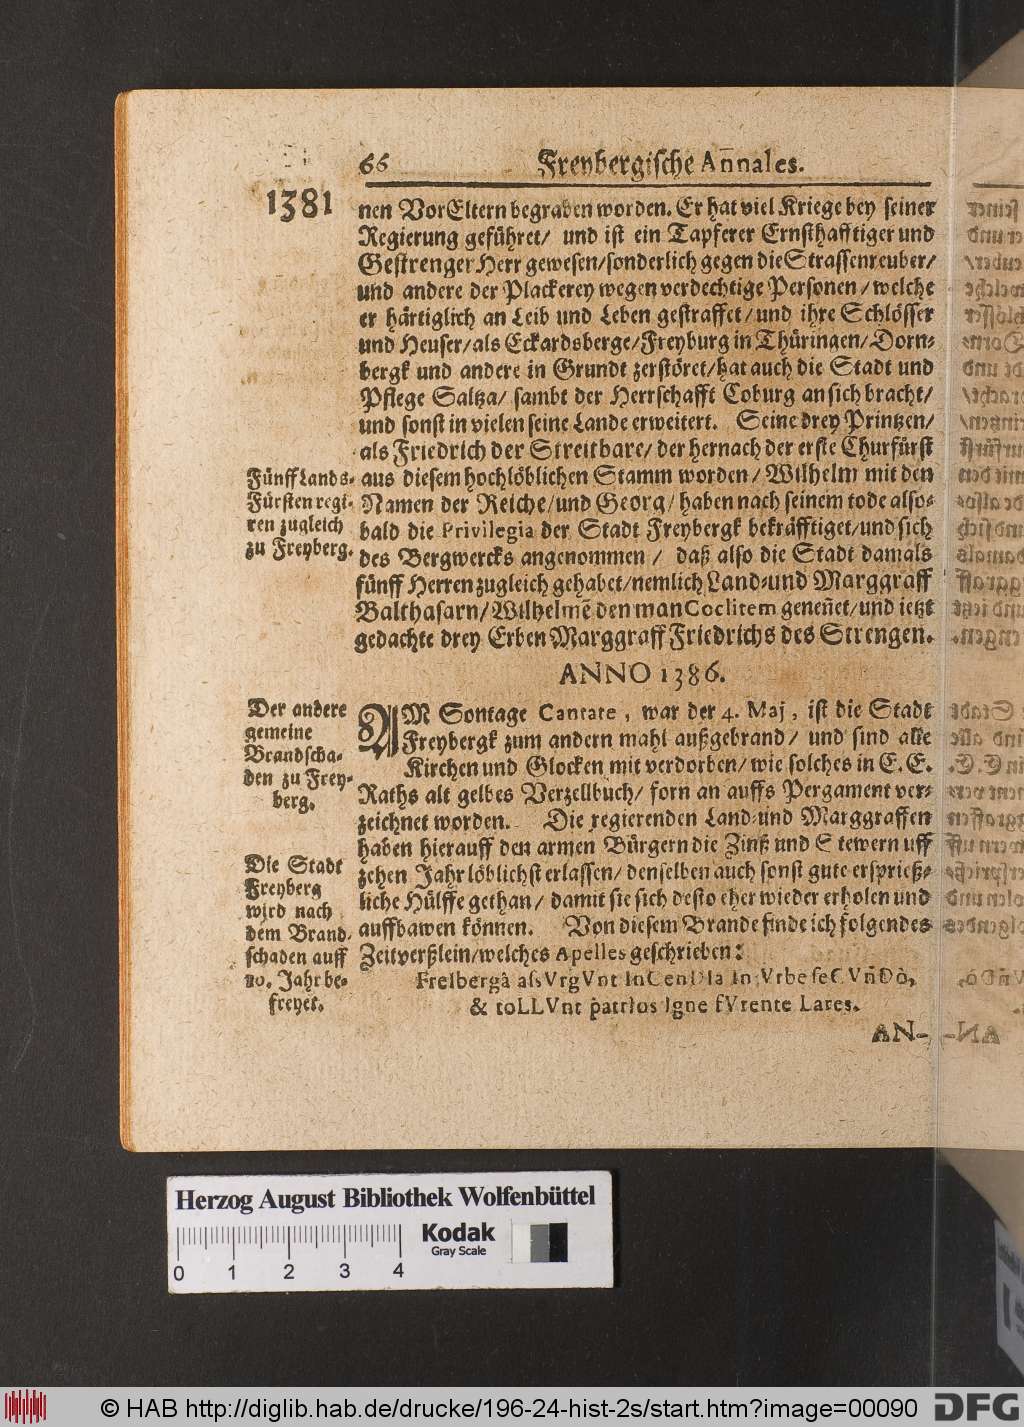 66 Freybergische Añales.
1381
nen VorEltern begraben worden. Er hat viel Kriege bey seiner
Regierung geführet/ und ist ein Tapferer Ernsthafftiger und
Gestrenger Herr gewesen/sonderlich gegen die Strassenreuber/
und andere der Plackerey wegen verdechtige Personen/welche
er härtiglich an Leib und Leben gestraffet/und ihre Schlösser
und Heuser/als Eckardsberge/Freyburg in Thüringen/Dorn-
bergk und andere in Grundt zerstöret/hat auch die Stadt und
Pflege Saltza/ sambt der Herrschafft Coburg an sich bracht/
und sonst in vielen seine Lande erweitert. Seine drey Printzen/
als Friedrich der Streitbare/der hernach der erste Churfürst
aus diesem hochlöblichen Stamm worden/Wilhelm mit den
Namen der Reiche/und Georg/haben nach seinem tode also-
bald die Privilegia der Stadt Freybergk bekräfftiget/und sich
des Bergwercks angenommen/ daß also die Stadt damals
fünff Herren zugleich gehabet/nemlich Land-und Marggraff
Balthasarn/Wilhelmē den man Coclitem geneñet/und ietzt
gedachte drey Erben Marggraff Friedrichs des Strengen.
Fünff Lands-
Fürsten regi-
ren zugleich
zu Freyberg.
ANNO 1386.
AM Sontage Cantate, war der 4. Maj, ist die Stadt
Freybergk zum andern mahl außgebrand/ und sind alle
Kirchen und Glocken mit verdorben/wie solches in E. E.
Raths alt gelbes Verzellbuch/ forn an auffs Pergament ver-
zeichnet worden. Die regierenden Land-und Marggraffen
haben hierauff den armen Bürgern die Zinß und Stewern uff
zehen Jahr löblichst erlassen/denselben auch sonst gute ersprieß-
liche Hülffe gethan/damit sie sich desto eher wieder erholen und
auffbawen können. Von diesem Brande finde ich folgendes
Zeitverßlein/welches Apelles geschrieben:
Der andere
gemeine
Brandscha-
den zu Frey-
berg.
Die Stadt
Freyberg
wird nach
dem Brand-
schaden auff
10. Jahr be-
freyet.
FreIberga alsVrgVnt InCenDIa In Vrbe seCVñDò,
& toLLVnt patrIos Igne fVrente Lares.
AN-
Herzog August Bibliothek Wolfenbüttel
Kodak
Gray Scale
0 1 2 3 4
© HAB http://diglib.hab.de/drucke/196-24-hist-2s/start.htm?image=00090
DFG